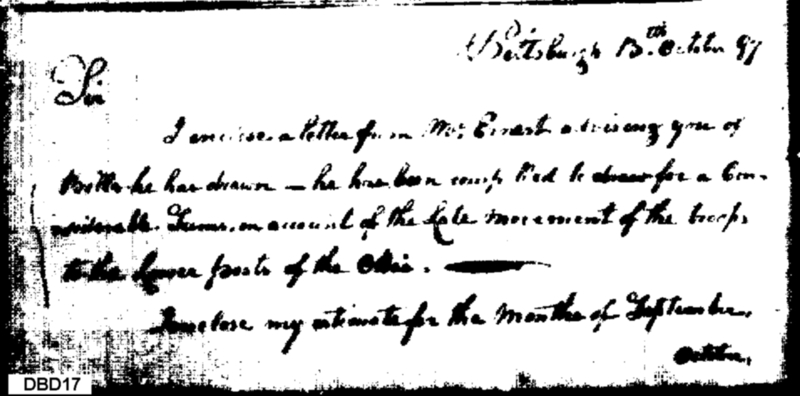 Pittsburgh 13.th October 97
Sir
I enclose a letter from Mr. Ernest advising you of
Bills he has drawn — he has been compelled to draw for a Con-
siderable Sums, on account of the late movement of the troops
to the Lower posts of the Ohio.
I enclose my estimate for the Months of September,
October,
DBD17